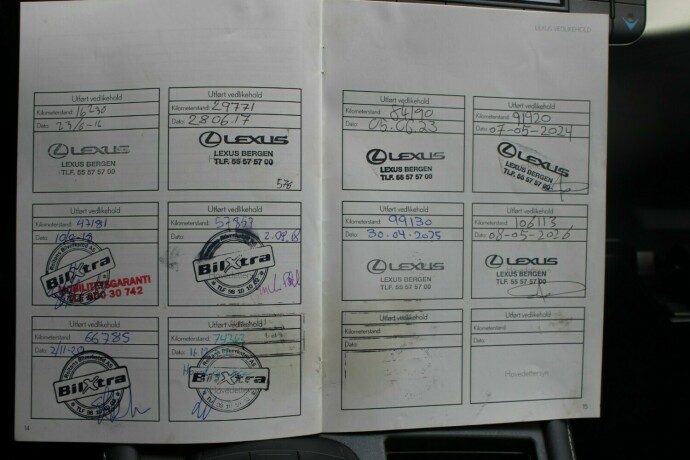 Utført vedlikehold
Kilometerstand: 16230
Dato: 23/6-16
LEXUS
LEXUS BERGEN
TLF. 55 57 57 00
Utført vedlikehold
Kilometerstand: 29771
Dato: 28.06.17
LEXUS
LEXUS BERGEN
TLF. 55 57 57 00
Utført vedlikehold
Kilometerstand: 47181
Dato:
BilXtra
MOBILITETSGARANTI
Utført vedlikehold
Kilometerstand:
Dato:
BilXtra
Utført vedlikehold
Kilometerstand: 66785
Dato:
BilXtra
Utført vedlikehold
Kilometerstand:
Dato:
BilXtra
Hovedettersyn
14
LEXUS VEDLIKEHOLD
Utført vedlikehold
Kilometerstand: 84190
Dato: 05.06.23
LEXUS
LEXUS BERGEN
TLF. 55 57 57 00
Utført vedlikehold
Kilometerstand: 91920
Dato: 07-05-2024
LEXUS
LEXUS BERGEN
TLF. 55 57 57 00
Utført vedlikehold
Kilometerstand: 99130
Dato: 30.04.2025
LEXUS
LEXUS BERGEN
TLF. 55 57 57 00
Utført vedlikehold
Kilometerstand: 106113
Dato: 08-05-2026
LEXUS
LEXUS BERGEN
TLF. 55 57 57 00
Utført vedlikehold
Kilometerstand:
Dato:
Utført vedlikehold
Kilometerstand:
Dato:
Hovedettersyn
15